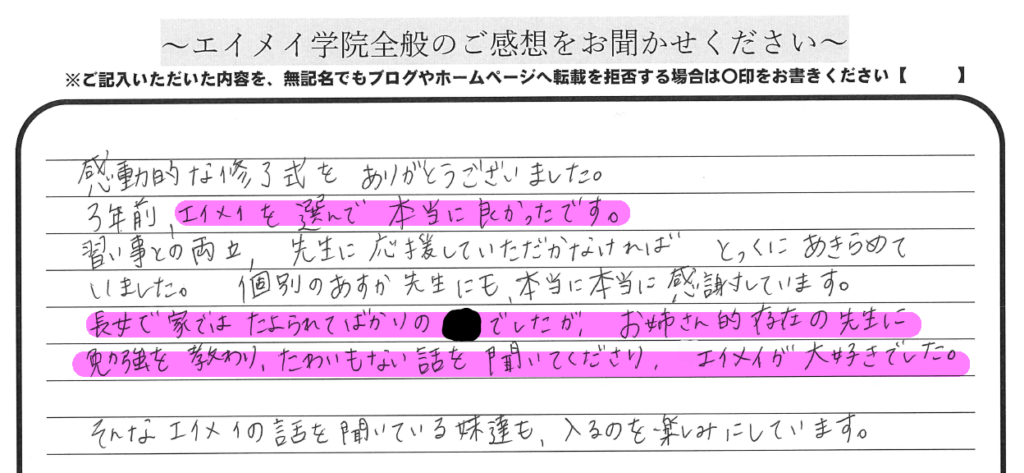 ～エイメイ学院全般のご感想をお聞かせください～
※ご記入いただいた内容を、無記名でもブログやホームページへ転載を拒否する場合は〇印をお書きください【　　】
感動的な修了式を ありがとうございました。
3年前、エイメイを選んで 本当に良かったです。
習い事との両立、先生に応援していただかなければ とっくにあきらめて
いました。 個別のあすか先生にも、本当に本当に感謝しています。
長女で家ではたよられてばかりの でしたが、お姉さん的存在の先生に
勉強を教わり、たわいもない話を聞いてくださり、エイメイが大好きでした。
そんなエイメイの話を聞いている妹達も、入るのを楽しみにしています。